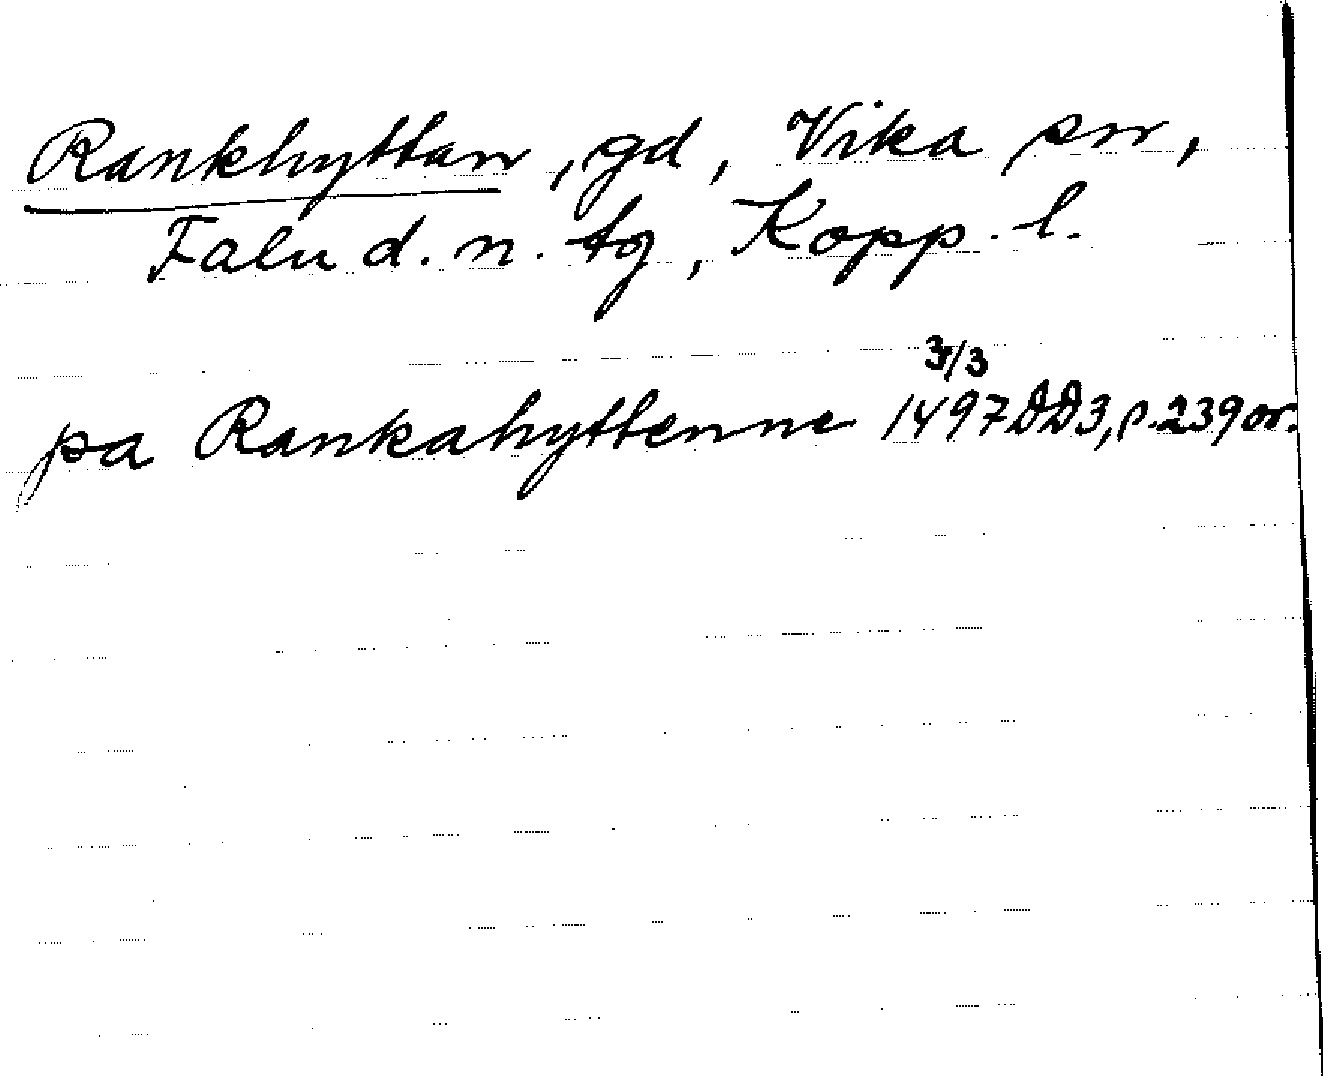 Rankhyttan, gd, Vika sn,
Falu d. n. tg, Kopp. l.
pa Rankahyttenne 3/3 1497 DD3, s. 239 or.